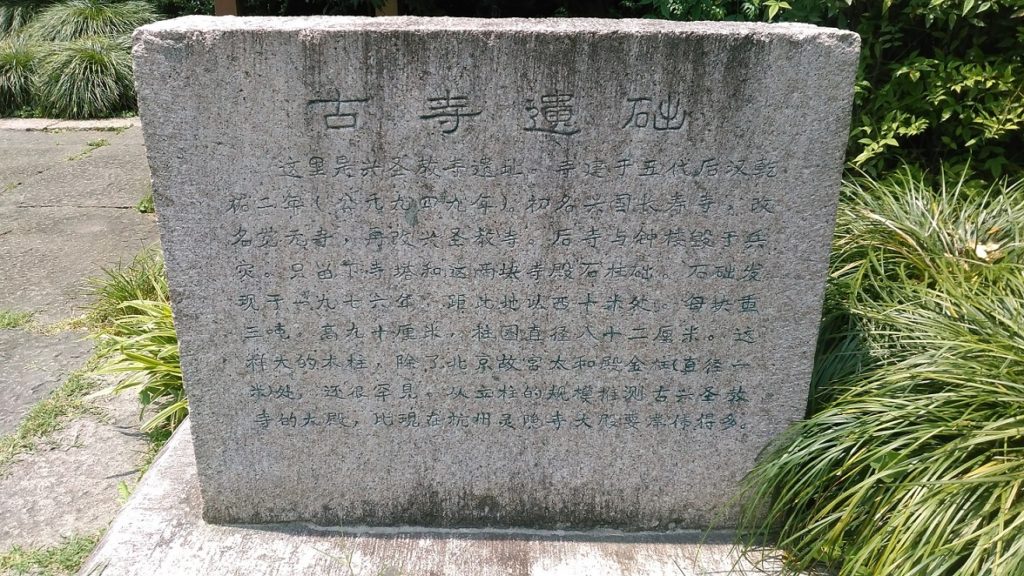 古寺遗础
这里是兴圣教寺遗址。寺建于五代后汉乾
祐二年(公元九四九年)。初名兴国长寿寺，改
名觉元寺，再改兴圣教寺。后寺与钟楼毁于兵
灾。只留下寺塔和这两块寺殿石柱础。石础发
现于一九七六年，距此地以西十米处。每块重
三吨，高九十厘米，柱围直径八十二厘米。这
样大的木柱，除了北京故宫太和殿金柱(直径一
米)处，还很罕见。从立柱的规模推测古兴圣教
寺的大殿，比现在杭州灵隐寺大殿要雄伟得多。